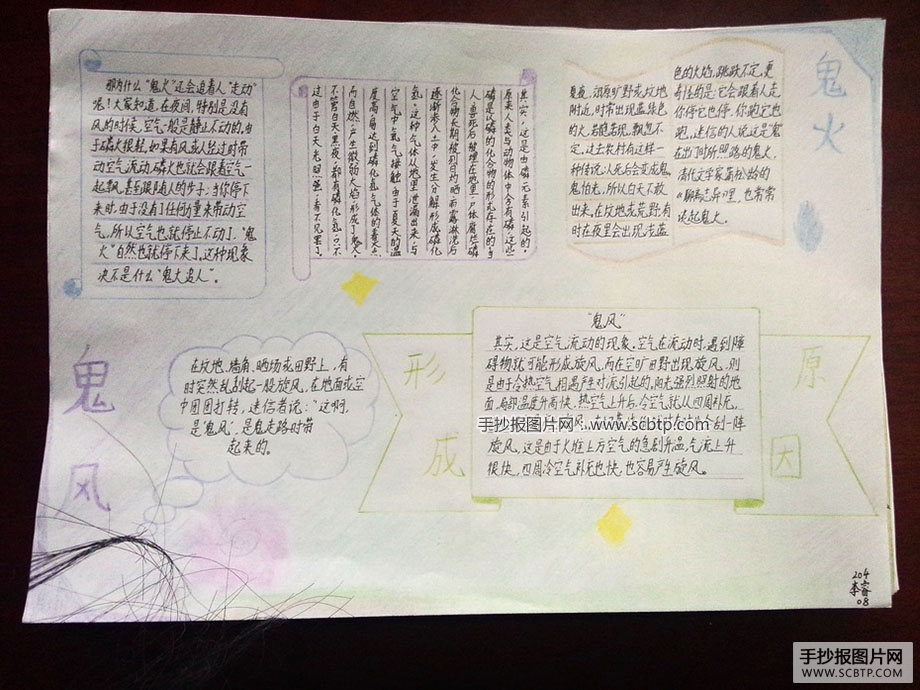 鬼火
夏夜，在旷野荒坟地
附近，时常出现蓝绿色
的火，若隐若现，飘忽不
定，过去农村有这样一
种传说：人死后会变成鬼，
鬼怕光，所以白天不敢
出来，在坟地荒荒野，有
时在夜里会出现浅蓝
色的火焰，跳跃不定，更
奇怪的是：它会跟着人走，
你停它也停，你跑它也
跑，迷信的人说这是鬼
在出门时所照路的鬼火，
清代文学家蒲松龄的
《聊斋志异》里，也常常
谈起鬼火。
其实，这是由磷元素引起的，
原来人类与动物体中含有磷，这些
磷是以磷的化合物的形式存在的，当
人、兽死后被埋在地里，尸体腐烂磷
化合物长期被烈日灼晒，雨露淋洗后
逐渐渗入土中，发生分解形成磷化
氢，这种气体从地里泄漏出来，与
空气中氧气接触，由于夏天的温
度高，易达到磷化氢气体的着火点
而自燃，产生微弱火焰，形成了鬼火，
不管白天黑夜，都有磷化氢，只不
过由于白天光照强，看不见罢了。
那为什么“鬼火”还会追着人“走动”
呢！大家知道，在夜间，特别是没有
风的时候，空气一般是静止不动的，由
于磷火很轻，如果有风或人经过时带
动空气流动，磷火也就会跟着空气一
起飘，甚至跟随人的步子；当你停下
来时，由于没有了任何力量来带动空
气，所以空气也就停止不动了，“鬼
火”自然也就停下来了，这种现象
决不是什么“鬼火追人”。
鬼风
在坟地、墙角、晒场或田野上，有
时突然乱刮起一股旋风，在地面或空
中团团打转，迷信者说：“这啊，
是‘鬼风’，是鬼走路时带
起来的。
形成
原因
“鬼风”
其实，这是空气流动的现象，空气在流动时，遇到障
碍物就可能形成旋风，而在空旷田野出现旋风，则
是由于冷热空气相遇产生对流引起的，向光强烈照射的地
面，局部温度升高快，热空气上升后，冷空气就从四周补充，
手抄报图片网——www.scbtp.com
刮一阵
旋风，这是由于火堆上方空气的急剧升温，气流上升
很快，四周冷空气补充也快，也容易产生旋风。
204
李睿
08
手抄报图片网
WWW.SCBTP.COM